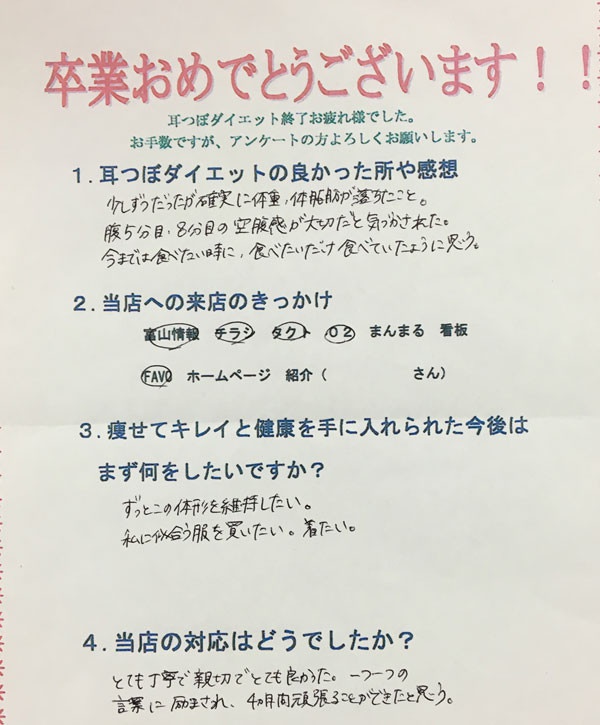 卒業おめでとうございます！！
耳つぼダイエット終了お疲れ様でした。
お手数ですが、アンケートの方よろしくお願いします。
１.耳つぼダイエットの良かった所や感想
少しずつだったが確実に体重、体脂肪が落ちたこと。
腹5分目、8分目の空腹感が大切だと気づかされた。
今までは食べたい時に、食べたいだけ食べていたように思う。
２.当店への来店のきっかけ
富山情報 チラシ タクト 02 まんまる 看板
FAVO ホームページ 紹介（ さん）
３.痩せてキレイと健康を手に入れられた今後は
まず何をしたいですか？
ずっとこの体形を維持したい。
私に似合う服を買いたい。着たい。
４.当店の対応はどうでしたか？
とても丁寧で親切でとても良かった。一つ一つの
言葉に励まされ、4ヵ月間頑張ることができたと思う。